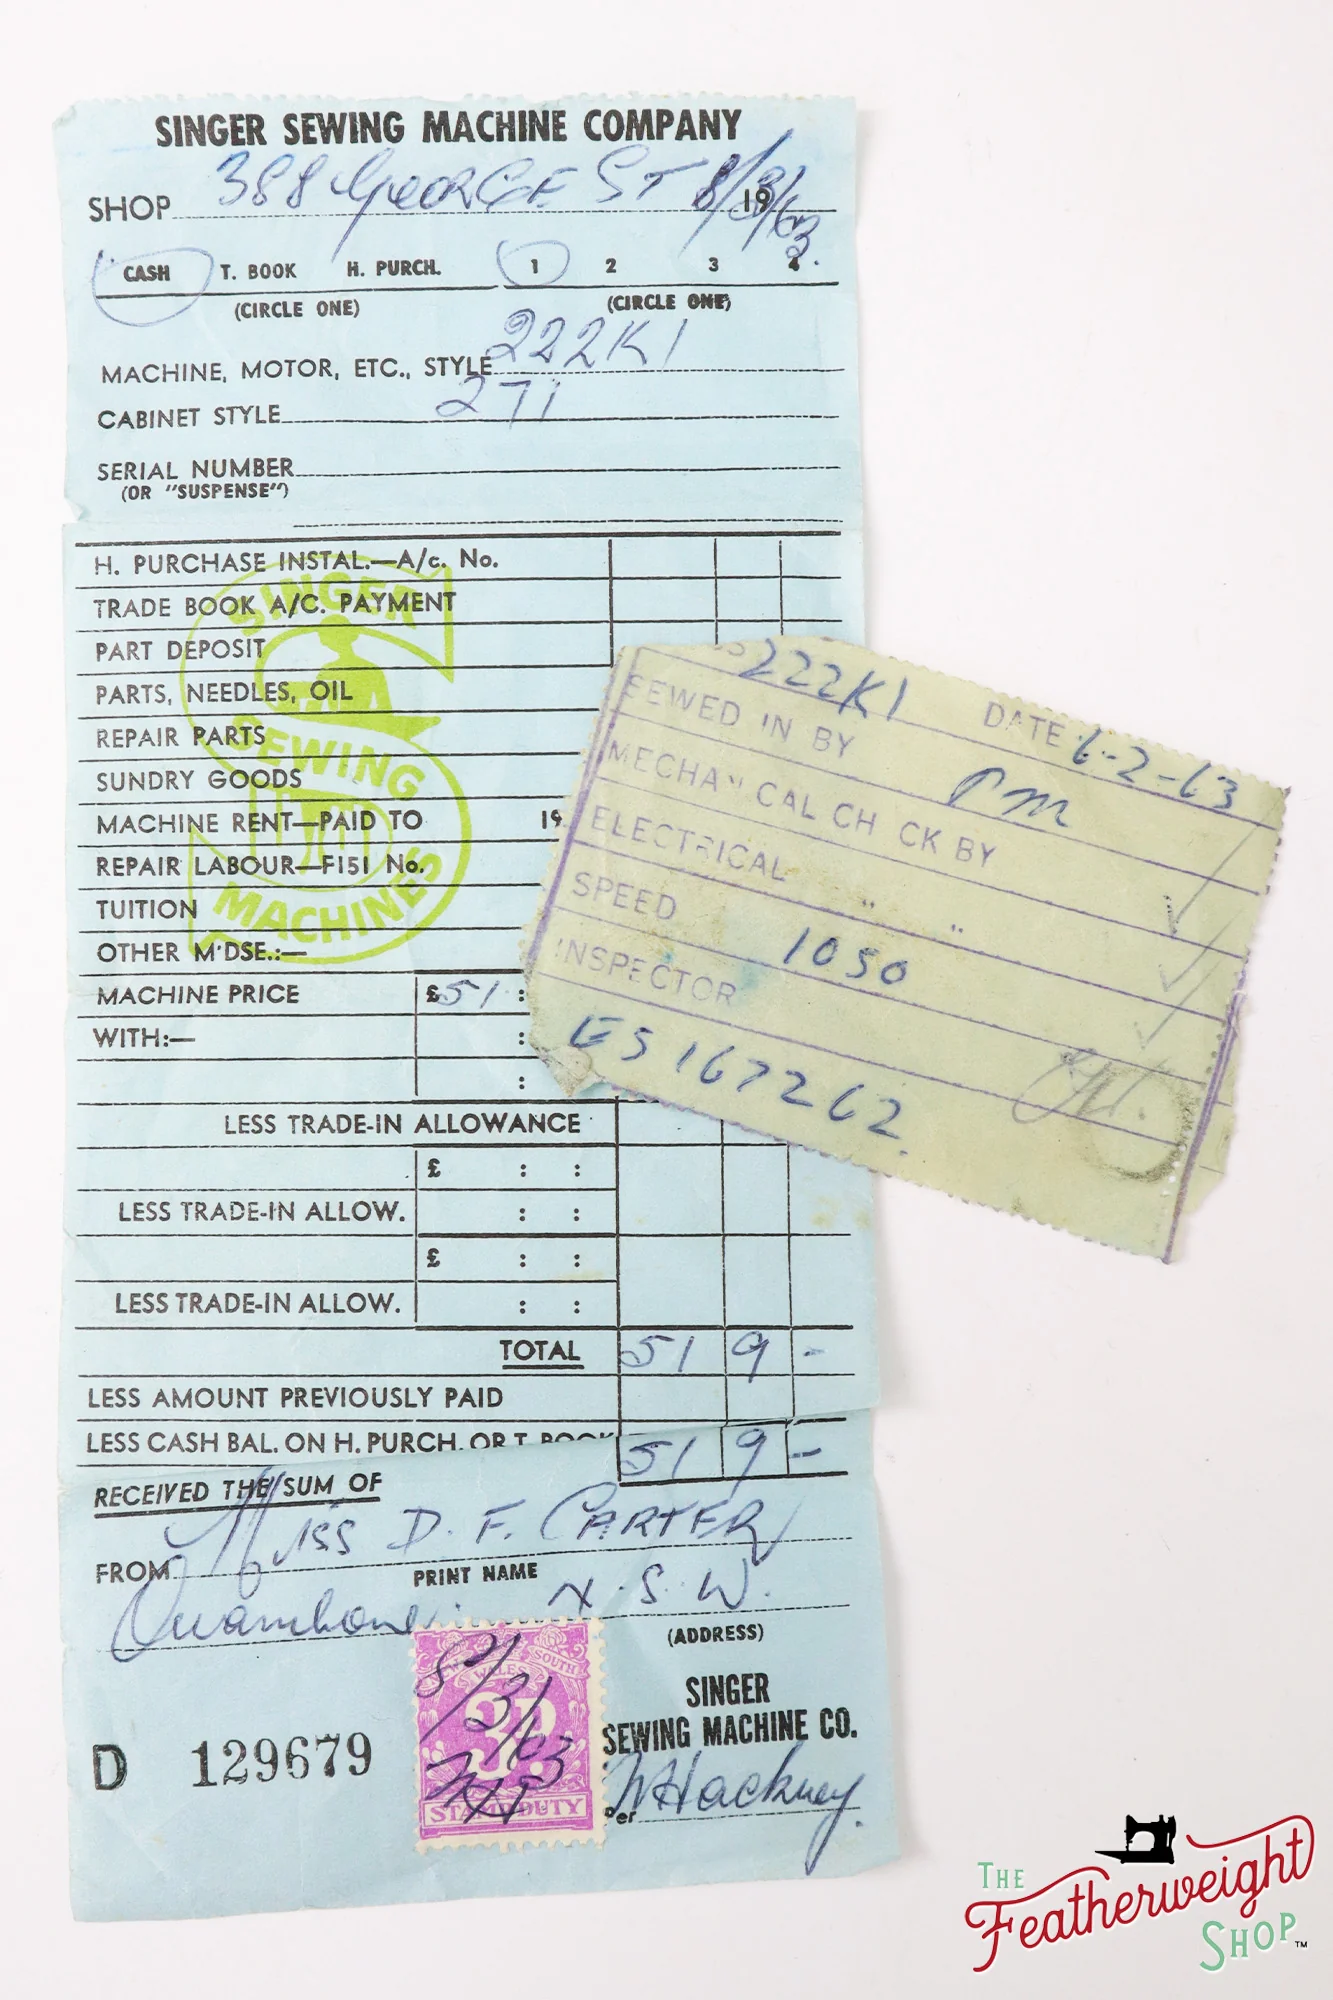 SINGER SEWING MACHINE COMPANY
SHOP 388 GEORGE ST 8/3/63 19
CASH T. BOOK H. PURCH. 1 2 3 4
(CIRCLE ONE) (CIRCLE ONE)
MACHINE, MOTOR, ETC., STYLE 222K1
CABINET STYLE 271
SERIAL NUMBER
(OR "SUSPENSE")
H. PURCHASE INSTAL.—A/c. No.
TRADE BOOK A/C. PAYMENT
PART DEPOSIT
PARTS, NEEDLES, OIL
REPAIR PARTS
SUNDRY GOODS
MACHINE RENT—PAID TO 19
REPAIR LABOUR—F151 No.
TUITION
OTHER M'DSE.:—
SINGER
SEWING
MACHINES
MACHINE PRICE £51 :
WITH:— :
:
LESS TRADE-IN ALLOWANCE
£ : :
LESS TRADE-IN ALLOW. : :
£ : :
LESS TRADE-IN ALLOW. : :
TOTAL 51 9 -
LESS AMOUNT PREVIOUSLY PAID
LESS CASH BAL. ON H. PURCH. OR T. BOOK 51 9 -
RECEIVED THE SUM OF
FROM Miss D. F. CARTER
PRINT NAME
Quambone. N.S.W.
(ADDRESS)
NEW SOUTH WALES
3D.
STAMP DUTY
8/3/63
SINGER
SEWING MACHINE CO.
D 129679
Per W Hackney.
222K1 DATE 6-2-63
SEWED IN BY Pm
MECHANICAL CHECK BY
ELECTRICAL " "
SPEED 1050
INSPECTOR
ES 167262.
THE
Featherweight
SHOP™